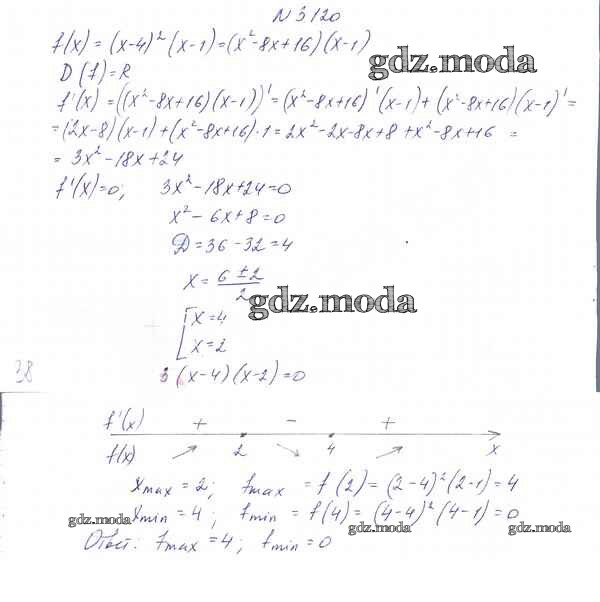 N 5120
f(x) = (x-4)²(x-1)=(x²-8x+16)(x-1)
gdz.moda
D(f)=R
f'(x) = ((x²-8x+16)(x-1))' = (x²-8x+16)'(x-1)+(x²-8x+16)(x-1)' =
=(2x-8)(x-1)+(x²-8x+16)·1=2x²-2x-8x+8+x²-8x+16 =
= 3x²-18x+24
f'(x)=0; 3x²-18x+24=0
x²-6x+8=0
D=36-32=4
x = (6±2)/2
gdz.moda
[x=4
x=2
3(x-4)(x-2)=0
38
f'(x) + - +
f(x) ↗ 2 ↘ 4 ↗ x
x max = 2; f max = f(2) = (2-4)²(2-1)=4
x min = 4; f min = f(4) = (4-4)²(4-1)=0
gdz.moda gdz.moda gdz.moda
Ответ: f max = 4; f min = 0